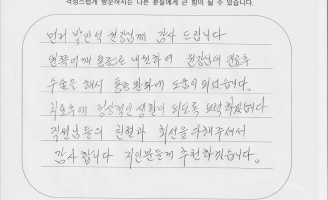 걱정스럽게 방문하시는 다른 분들에게 큰 힘이 될 수 있습니다.
먼저 박인석 원장님께 감사 드립니다
왼쪽어깨 통증으로 내원하여 원장님의 진료후
수술을 해서 통증 완화에 도움이 되었습니다.
치료후에 정상적인 생활이 되도록 노력하겠습니다
직원님들의 친절과 최선을 다해주셔서
감사합니다 지인분들게 추천하겠습니다.